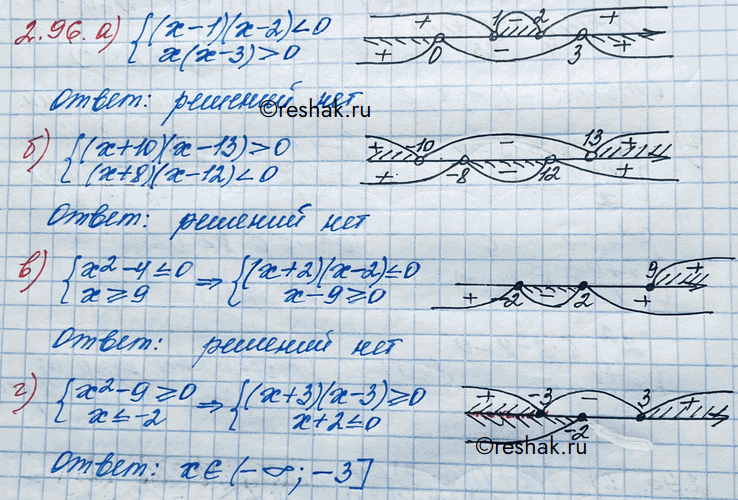 2.96. а) {(x-1)(x-2)<0
x(x-3)>0
+ 1 - 2 +
+ 0 - 3 +
Ответ: решений нет
©reshak.ru
б) {(x+10)(x-13)>0
(x+8)(x-12)<0
+ -10 - 13 +
+ -8 - 12 +
Ответ: решений нет
в) {x²-4≤0 ⇒ {(x+2)(x-2)≤0
x≥9 x-9≥0
9 +
+ -2 - 2 +
Ответ: решений нет
г) {x²-9≥0 ⇒ {(x+3)(x-3)≥0
x≤-2 x+2≤0
+ -3 - 3 +
-2
©reshak.ru
Ответ: x∈(-∞; -3]